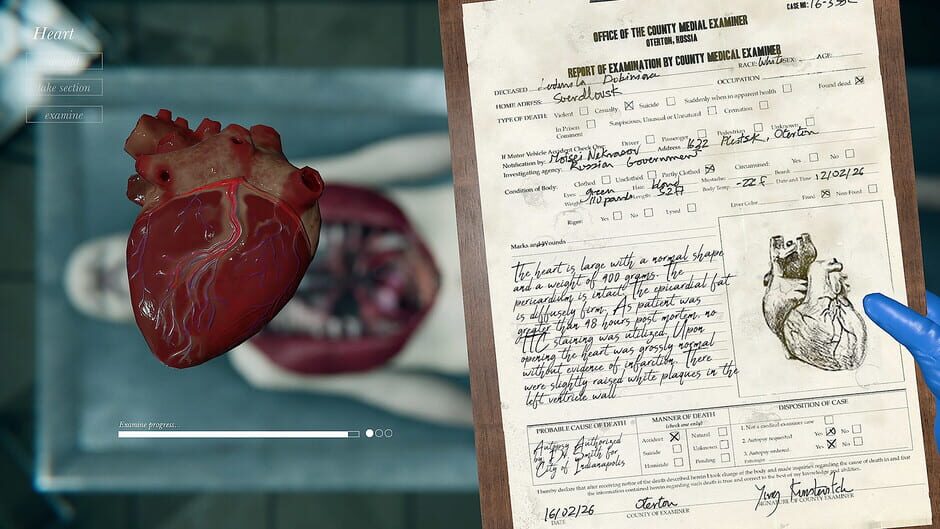 Heart
take section
examine
Examine progress...
CASE NO: 16-
OFFICE OF THE COUNTY MEDIAL EXAMINER
OTERTON, RUSSIA
REPORT OF EXAMINATION BY COUNTY MEDICAL EXAMINER
DECEASED Dobinsova RACE: White SEX: - AGE:
HOME ADRESS: Sverdlovsk OCCUPATION
TYPE OF DEATH: Violent Casualty Suicide Suddenly when in apparent health Found dead
In Prison Suspicious, Unusual or Unnatural Cremation
Comment
If Motor Vehicle Accident Check One: Driver Passenger Pedestrian Unknown
Notification by: Moisei Nekrasov Address 1622 Plestsk, Oterton
Investigating agency: Russian Government
Condition of Body: Clothed Unclothed Partly Clothed Circumcised: Yes No
Eyes: green Hair: blond Mustache: Beard:
Weight: 110 pands Length: 52ft Body Temp: -22 f Date and Time 12/02/26
Rigor: Yes No Lysed Liver Color Fixed Non-Fixed
Marks and Wounds
The heart is large with a normal shape
and a weight of 900 grams. The
pericardium is intact. The epicardial fat
is diffusely firm. As patient was
greater than 48 hours post mortem, no
TTC staining was utilized. Upon
opening the heart was grossly normal
without evidence of infarction. There
were slightly raised white plaques in the
left ventricle wall
PROBABLE CAUSE OF DEATH
Autopsy Authorized
by Smith for
City of Indianapolis
MANNER OF DEATH
(check one only)
Accident Natural
Suicide Unknown
Homicide Pending
DISPOSITION OF CASE
1. Not a medical examiner case
2. Autopsy requested Yes No
3. Autopsy ordered Yes No
I hereby declare that after receiving notice of the death described herein I took charge of the body and made inquiries regarding the cause of death in and
the information contained herein regarding such death is true and correct to the best of my knowledge and abilities.
16/02/26 Oterton
DATE COUNTY OF EXAMINER SIGNATURE OF COUNTY EXAMINER